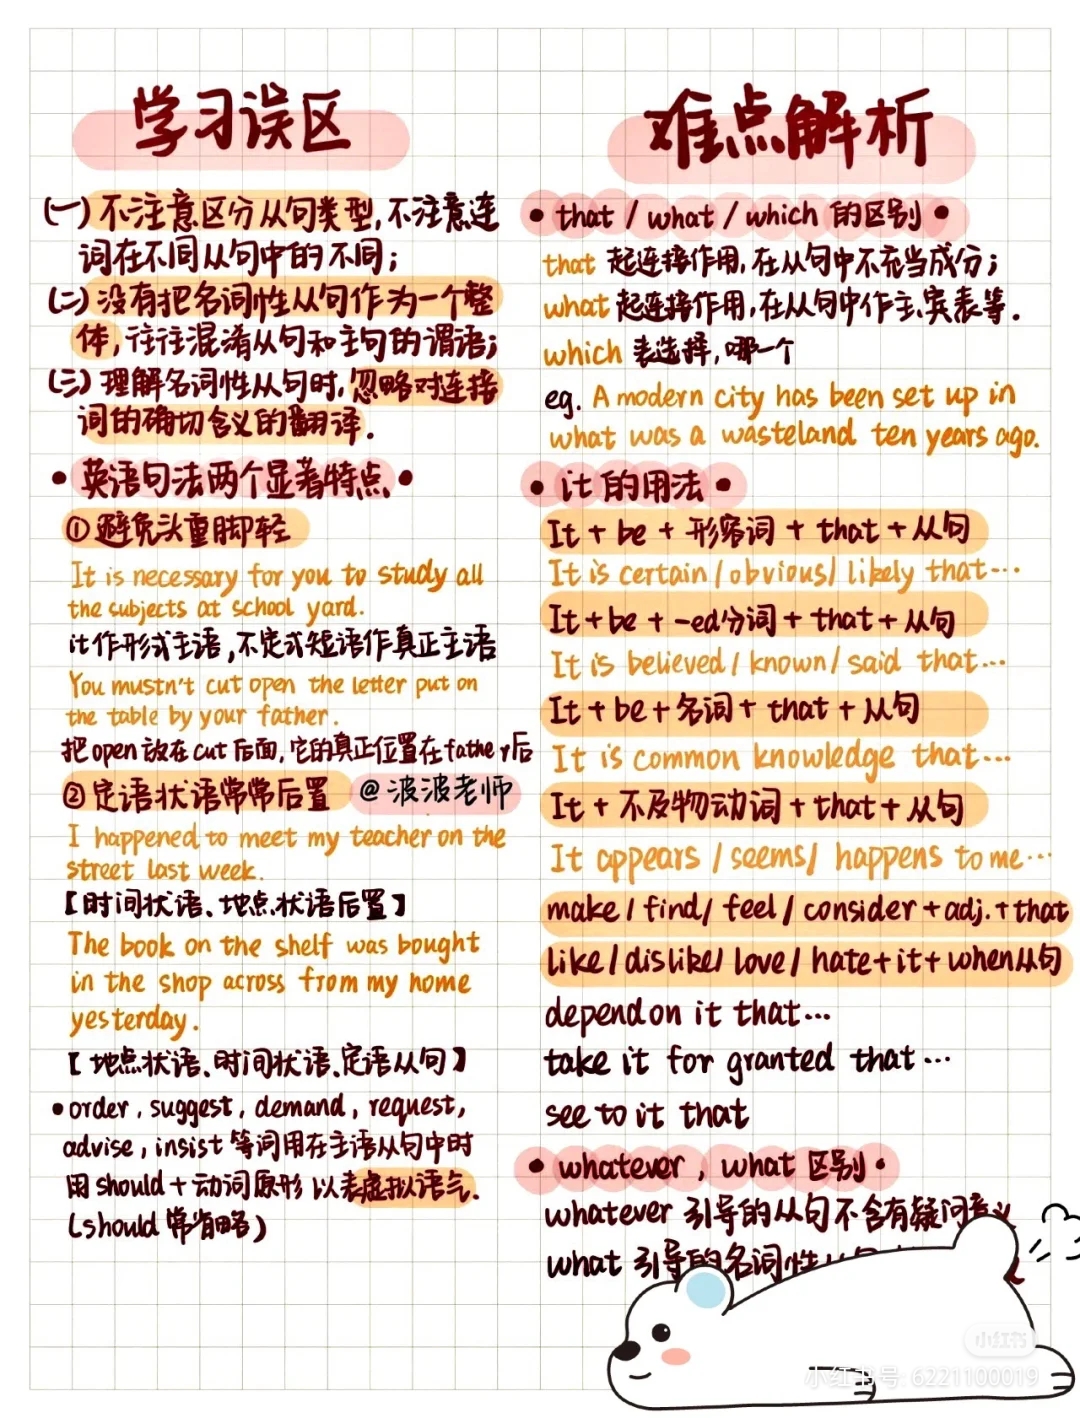 学习误区
(一)不注意区分从句类型,不注意连
词在不同从句中的不同;
(二)没有把名词性从句作为一个整
体,往往混淆从句和主句的谓语;
(三)理解名词性从句时,忽略对连接
词的确切含义的翻译.
•英语句法两个显着特点•
①避免头重脚轻
It is necessary for you to study all
the subjects at school yard.
it作形式主语,不定式短语作真正主语
You mustn't cut open the letter put on
the table by your father.
把open放在cut后面,它的真正位置在father后
②定语状语常常后置 @波波老师
I happened to meet my teacher on the
street last week.
【时间状语、地点状语后置】
The book on the shelf was bought
in the shop across from my home
yesterday.
【地点状语、时间状语、定语从句】
•order, suggest, demand, request,
advise, insist等词用在主语从句中时
用should+动词原形以表虚拟语气.
(should常省略)
难点解析
•that/what/which的区别•
that起连接作用,在从句中不充当成分;
what起连接作用,在从句中作主、宾、表等.
which表选择,哪一个
eg. A modern city has been set up in
what was a wasteland ten years ago.
•it的用法•
It+be+形容词+that+从句
It is certain/obvious/likely that…
It+be+-ed分词+that+从句
It is believed/known/said that…
It+be+名词+that+从句
It is common knowledge that…
It+不及物动词+that+从句
It appears/seems/happens to me…
make/find/feel/consider+adj.+that
like/dislike/love/hate+it+when从句
depend on it that…
take it for granted that…
see to it that
•whatever, what区别•
whatever引导的从句不含有疑问意义
what引导的名词性从句
小红书
小红书号: 6221100019